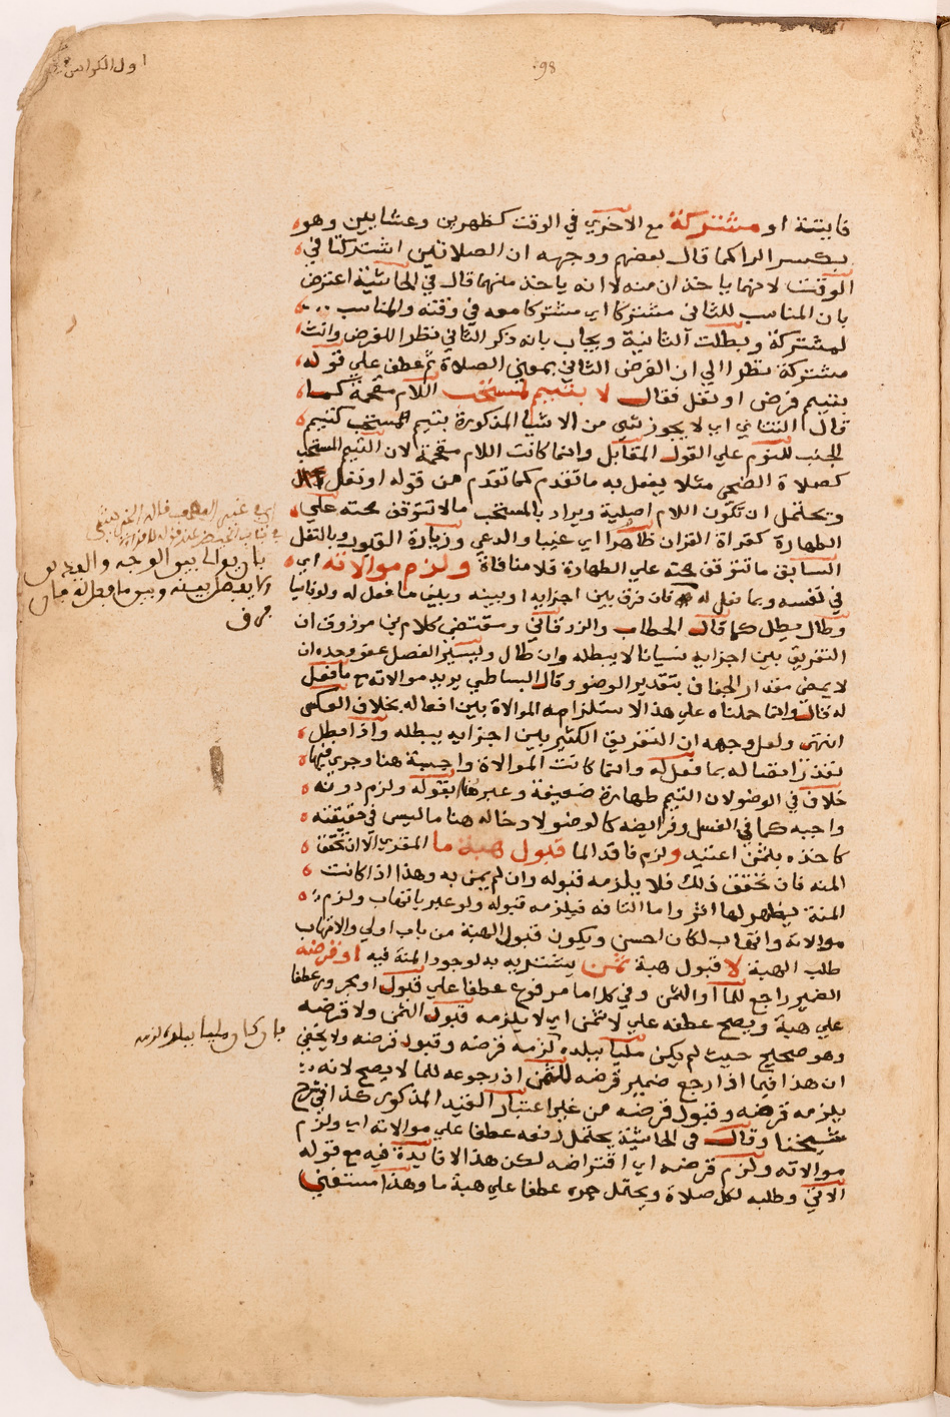 اول الكراس
98
فايتتة او مشتركة مع الاخري في الوقت كظهرين وعشايين وهو
بكسر الرا كما قال بعضهم ووجهه ان الصلاتين اشتركتا في
الوقت لانهما ياخذان منه لا انه ياخذ منهما قال في الحاشية اعترض
بان المناسب للثاني مشتركا اي مشتركا معه في وقته والمناسب
لمشتركة وبطلت الثانية ويجاب بانه ذكر الثاني نظرا للفرض وانث
مشتركة نظرا الي ان الفرض الثاني بمعني الصلاة ثم عطف علي قوله
بتيمم فرض او نفل فقال لا بتيمم لمستحب اللام مقحمة كما
قال التتاي اي لا يجوز شي من الاشيا المذكورة بتيمم المستحب كتيمم
الجنب للنوم علي القول المقابل وانما كانت اللام مقحمة لان التيمم المستحب
كصلاة الضحي مثلا يفعل به ما تقدم كما تقدم من قوله او نفل
ويحتمل ان تكون اللام اصلية ويراد بالمستحب ما لا تتوقف صحته علي
الطهارة كقراة القران ظاهرا اي غيبا والدعي وزيارة القبور وبالنفل
السابق ما تتوقف صحته علي الطهارة فلا منافاة ولزم موالاته اي
في نفسه وبما فعل له فان فرق بين اجزايه او بينه وبين ما فعل له ولو ناسيا
وطال بطل كما قال الحطاب والزرقاني ومقتضي كلام بن مرزوق ان
التفريق بين اجزايه نسيانا لا يبطله وان طال ويسير الفصل عفو وحده ان
لا يمضي مقدار الجفاف بتقدير الوضو وقال البساطي يريد موالاته مع ما فعل
له قال وانما حملناه علي هذا لاستلزامه الموالاة بين افعاله بخلاف العكس
انتهي ولعل وجهه ان التفريق الكثير بين اجزايه يبطله واذا بطل
تعذر اتصاله بما فعل له وانما كانت الموالاة واجبة هنا وجري فيها
خلاف في الوضو لان التيمم طهارة ضعيفة وعبر هنا بقوله ولزم دونه
واجبه كما في الغسل وفرايضه كالوضو لادخاله هنا ما ليس في حقيقته
كاخذه بثمن اعتيد ولزم فاقد الما قبول هبة ما المقتري الا ان تحقق
المنه فان تحقق ذلك فلا يلزمه قبوله وان لم يمن به وهذا اذا كانت
المنة يظهر لها اثر واما التافه فيلزمه قبوله ولو عبر باتهاب ولزم
موالاته واتهاب لكان احسن ويكون قبول الهبة من باب اولي والاتهاب
طلب الهبة لا قبول هبة ثمن يشتريه به لوجود المنة فيه او قرضه
الضمير راجع للما او الثمن وفي كل اما مرفوع عطفا علي قبول او مجرور عطفا
علي هبة ويصح عطفه علي لا ثمن اي لا يلزمه قبول الثمن ولا قرضه
وهو صحيح حيث لم يكن مليا ببلده لزمه قرضه وقبول قرضه ولا يخفي
ان هذا فيما اذا رجع ضمير قرضه للثمن اذ رجوعه للما لا يصح لانه
يلزمه قرضه وقبول قرضه من غير اعتبار القيد المذكور كذا في شرح
شيخنا وقال في الحاشية يحتمل رفعه عطفا علي موالاته اي ولزم
موالاته ولزم قرضه اي اقتراضه لكن هذا لا فايدة فيه مع قوله
الاتي وطلبه لكل صلاة ويحتمل جره عطفا علي هبة ما وهذا مستغني
بان يوالي بين الوجه واليدين
ولا يفصل بينه وبين ما فعل له فان
فرق
بان كان مليا ببلده لزمه